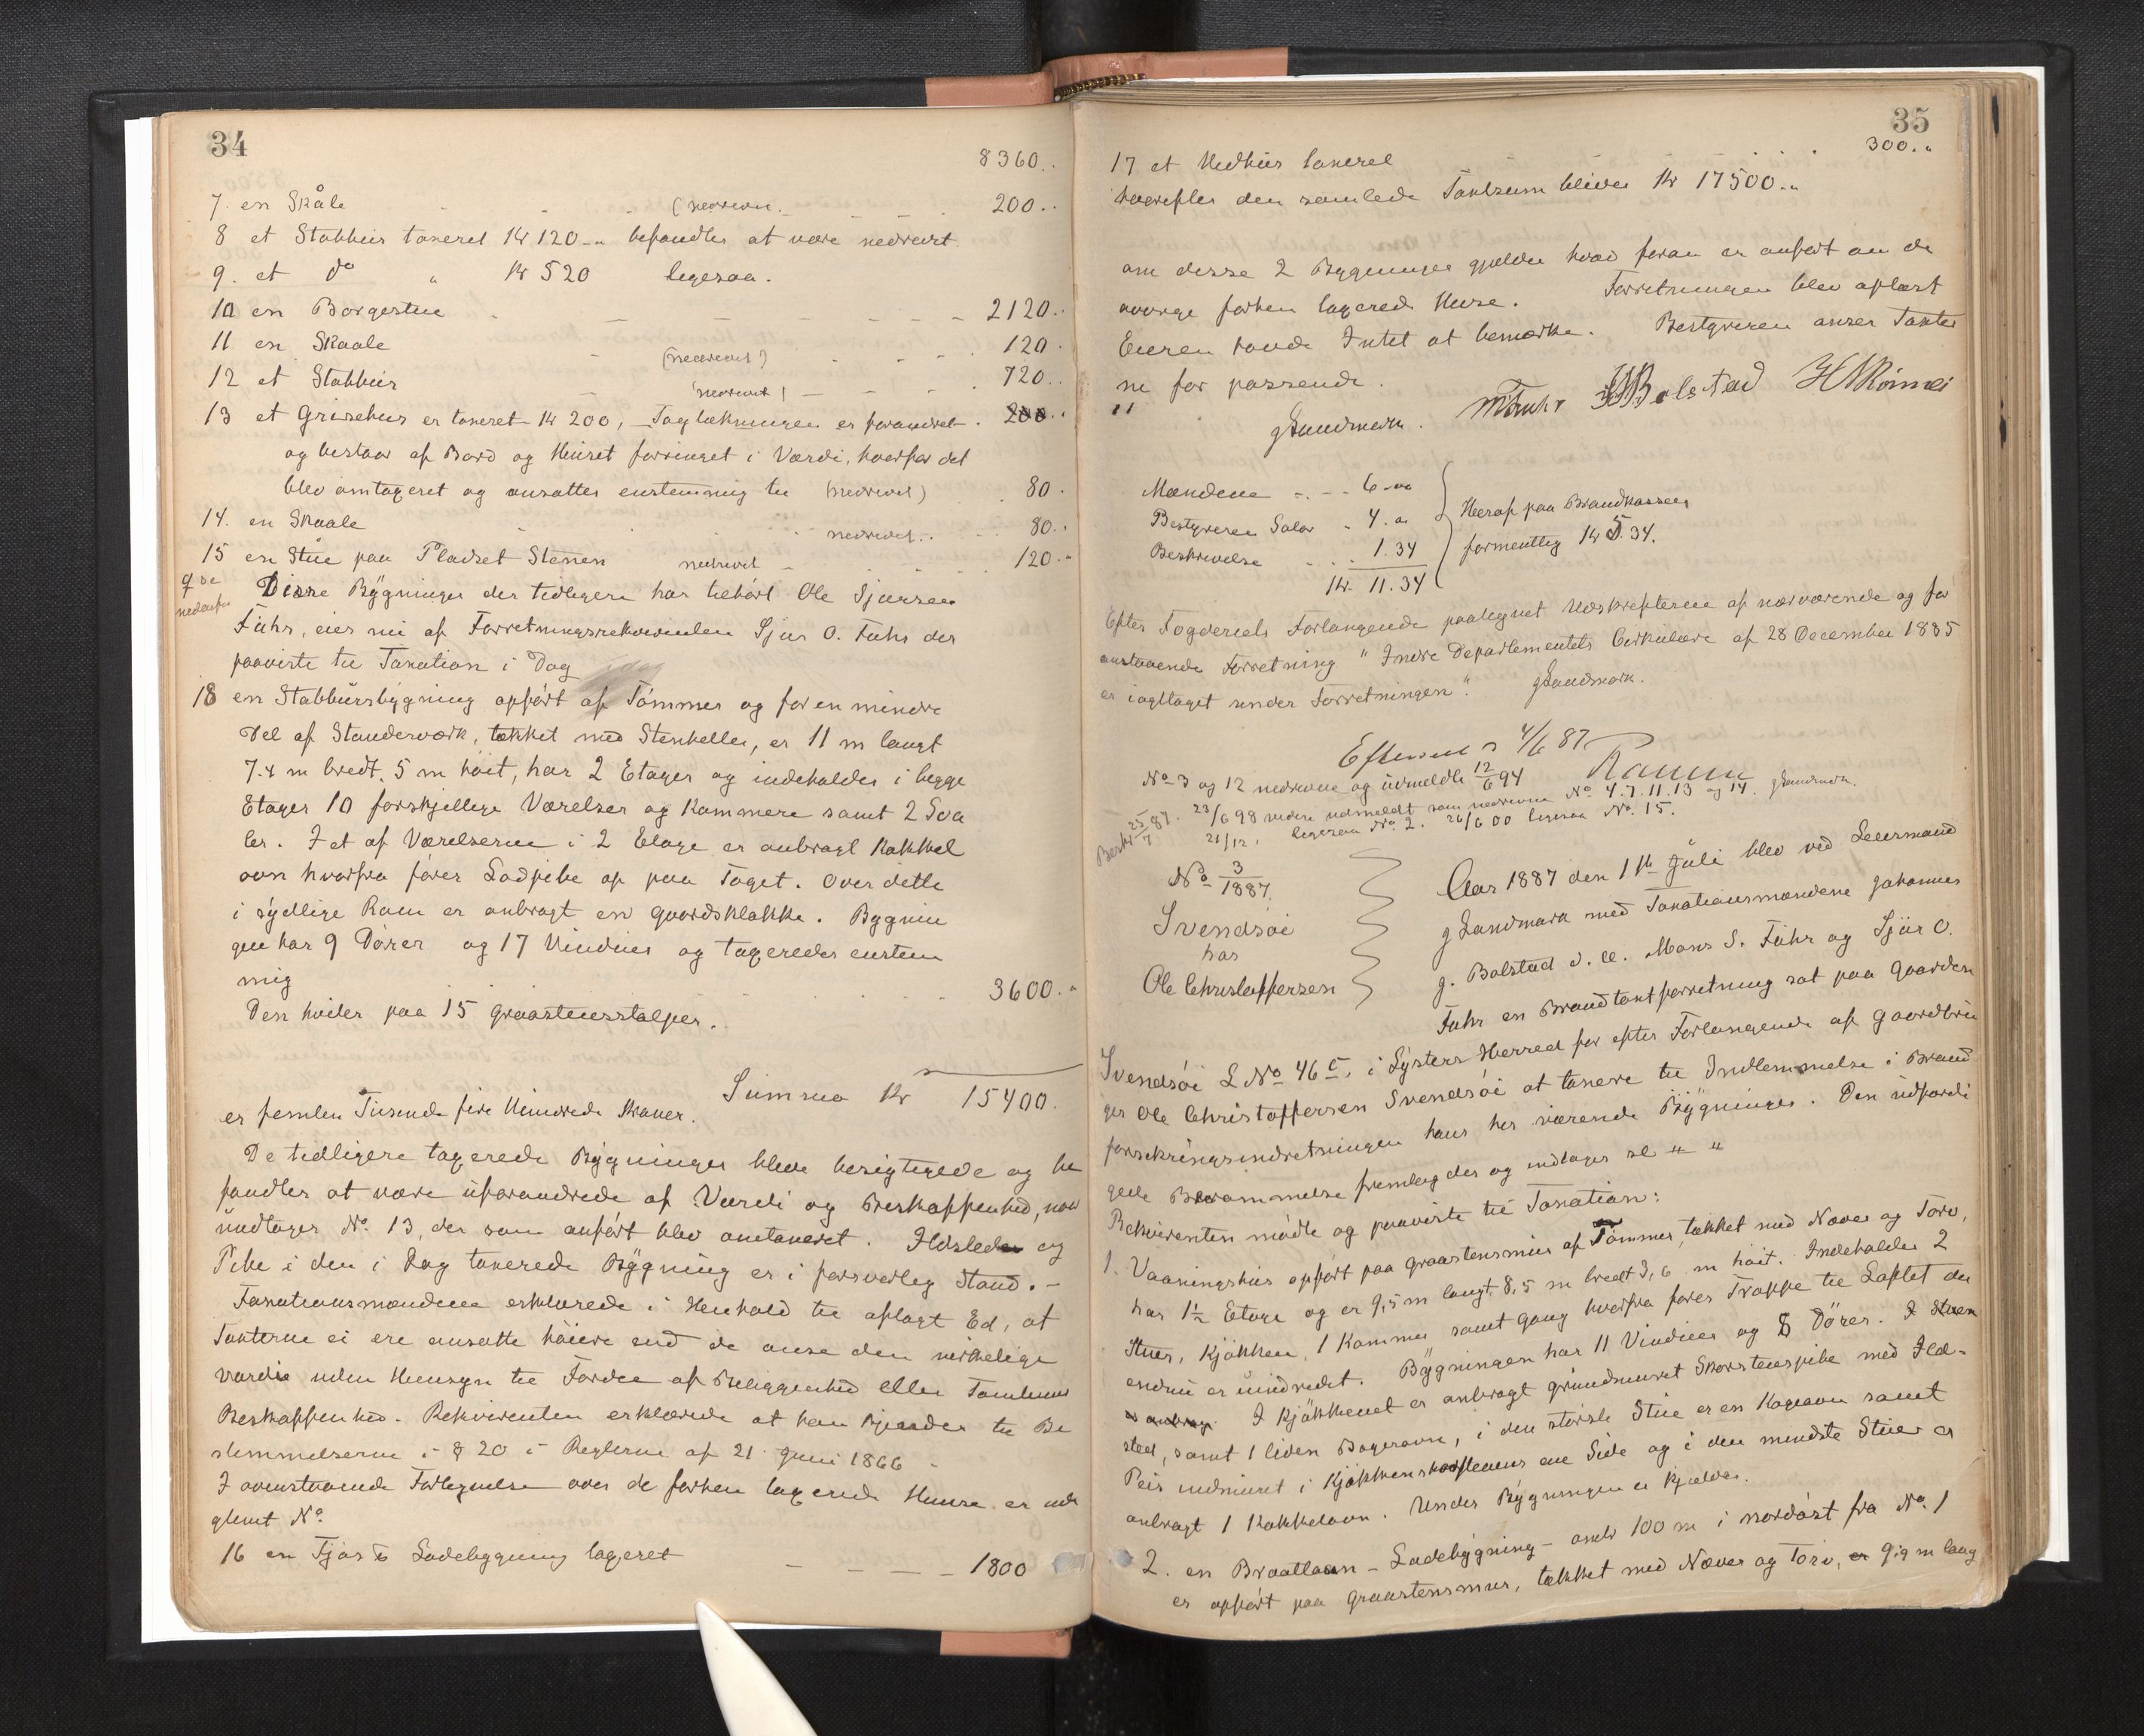 34
8360..
7. en Skåle (nedreven. 200..
8 et Stabbur taxeret Kr 120 „ befandtes at være nedrevet.
9. et do „ Kr 520 ligesaa.
10 en Borgestue 2120..
11 en Skaale (nedrevet) 120.
12 et Stabbur (nedrevet) 720..
13 et Grisehus er taxeret Kr 200, Taglækningen er forandret. 200..
og bestaar af Bord og Huset forringet i Værdi, hvorfor det
blev omtaxeret og ansattes enstemmig til (nedrevet) 80.
14. en Skaale nedrevet.. 80..
15 en Stue paa Pladset Stenen nedrevet 120..
Disse Bygninger der tidligere har tilhørt Ole Sjursen
Fuhr, eies nu af Forretningsrekvirenten Sjur O. Fuhr der
paaviste til Taxation i Dag
18 en Stabbursbygning opført af Tømmer og for en mindre
Del af Standerværk, tækket med Stenheller, er 11 m langt
7.4 m bredt, 5 m høit, har 2 Etager og indeholder i begge
Etager 10 forskjellige Værelser og Kammere samt 2 Sva
ler. I et af Værelserne i 2 Etage er anbragt Kakkel
ovn hvorfra fører Ladpibe op paa Taget. Over dette
i sydlige Ram er anbragt en Gaardsklokke. Bygnin
gen har 9 Dører og 17 Vinduer og taxeredes enstem
mig 3600.„
Den hviler paa 15 Graastensstolper.
Summa Kr 15400.
er femten Tusende fire Hundrede Kroner.
De tidligere taxerede Bygninger bleve besigtigede og be
fandtes at være uforandrede af Værdi og Beskaffenhed, naar
undtages No. 13, der som anført blev omtaxeret. Ildsteder og
Pibe i den i Dag taxerede Bygning er i forsvarlig Stand. –
Taxationsmændene erklærede i Henhold til aflagt Ed, at
Taxterne ei ere ansatte høiere end de anse den virkelige
værdie uden Hensyn til Fordele af Beliggenhed eller Tomtens
Beskaffenhed. Rekvirenten erklærede at han kjender til Be
stemmelserne i § 20 i Reglerne af 21 Juni 1866 –
I ovenstaaende Fortegnelse over de forhen taxerede Huse er ude
glemt No.
16 en Fjøs & Ladebygning taxeret 1800
35
17 et Vedhus taxeret 300.„
hvorefter den samlede Taxtsum bliver Kr 17500.„
om disse 2 Bygninger gjælder hvad foran er anført om de
øvrige forhen taxerede Huse. Forretningen blev oplæst
Eieren havde Intet at bemærke. Bestyreren anser Taxter
ne for passende.
" gLandmark. MFuhr JGBolstad
Mændene 6-00
Bestyreren Salær 4.00
Beskrivelse 1.34
Kr. 11.34
Heraf paa Brandkassen
formentlig Kr 5.34.
Efter Fogderiets Forlangende paategnet Udskrifterne af nærværende og for
anstaaende Forretning " Indre Departementets Cirkulære af 28 December 1885
er iagttaget under Forretningen". gLandmark.
Efterseet 4/6 87
No 3 og 12 nedrevne og udmeldte 12/6 94
23/6 98 videre udmeldt som nedrevne No 4. 7. 11. 13 og 14. gLandmark.
Beskr 25/7 87. 21/12, ligesaa No. 2. 26/6 00 ligesaa No. 15.
No 3/1887.
Svendsøi
hos
Ole Christoffersen
Aar 1887 den 1ste Juli blev ved Lensmand
g Landmark med Taxationsmændene Johannes
g. Bolstad d. æ. Mons S. Fuhr og Sjur O.
Fuhr en Brandtaxtforretning sat paa Gaarden
Svendsøi L No 46 c, i Lysters Herred for efter Forlangende af Gaardbru
ger Ole Christoffersen Svendsøi at taxere til Indlemmelse i Brand
forsikringsindretningen hans her værende Bygninger. Den udfærdi
gede Berammelse fremlagdes og indtages sl " "
Rekvirenten mødte og paaviste til Taxation:
1. Vaaningshus opført paa Graastensmur af Tømmer, tækket med Næver og Torv,
har 1½ Etage og er 9,5 m langt, 8,5 m bredt 3,6 m høit. Indeholder 2
Stuer, Kjøkken, 1 Kammer samt Gang hvorfra fører Trappe til Loftet der
endnu er uindredet. Bygningen har 11 Vinduer og 8 Dører. I Stuen
er anbragt I Kjøkkenet er anbragt grundmuret Skorstenspibe med Ild-
sted, samt 1 liden Bagerovn, i den største Stue er en Kogeovn samt
Peis indmuret i Kjøkkenskorstenens ene Side og i den mindste Stue er
anbragt 1 Kakkelovn. Under Bygningen er Kjælder.
2. en Braatloen – Ladebygning – omtr 100 m i nordøst fra No. 1
er opført paa Graastensmur, tækket med Næver og Torv, er 9.9 m lang